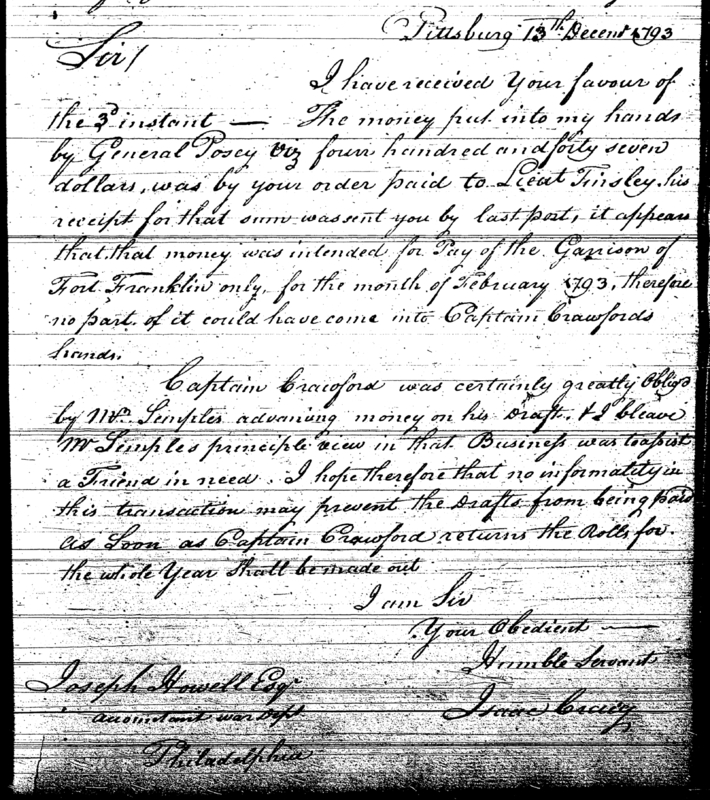 Pittsburg 13th Decemr 1793
Sir/
I have received Your favour of
the 3d instant — The money put into my hands
by General Posey Viz fourr hundred and forty seven
dollars, was by your order paid to Lieut Tinsley, his
receipt for that sum was sent you by last post, it appears
that that money was intended for Pay of the Garrison of
Fort Franklin only, for the month of February 1793, therefore
no part of it could have come into Captain Crawfords
hands.
Captain Crawford was certainly greatly Oblig'd
by Mr. Semples advancing money on his Draft, & I bleave
Mr Semples principle view in that Business was to assist
a Friend in need. I hope therefore that no informatity in
this transaction may prevent the Drafts from being paid
as Soon as Captain Crawford returns the Rolls for
the whole Year Shall be made out
I am Sir
Your Obedient —
Humble Servant
Isaac Craig
Joseph Howell Esqr
Accountant War Dept
Philadelphia